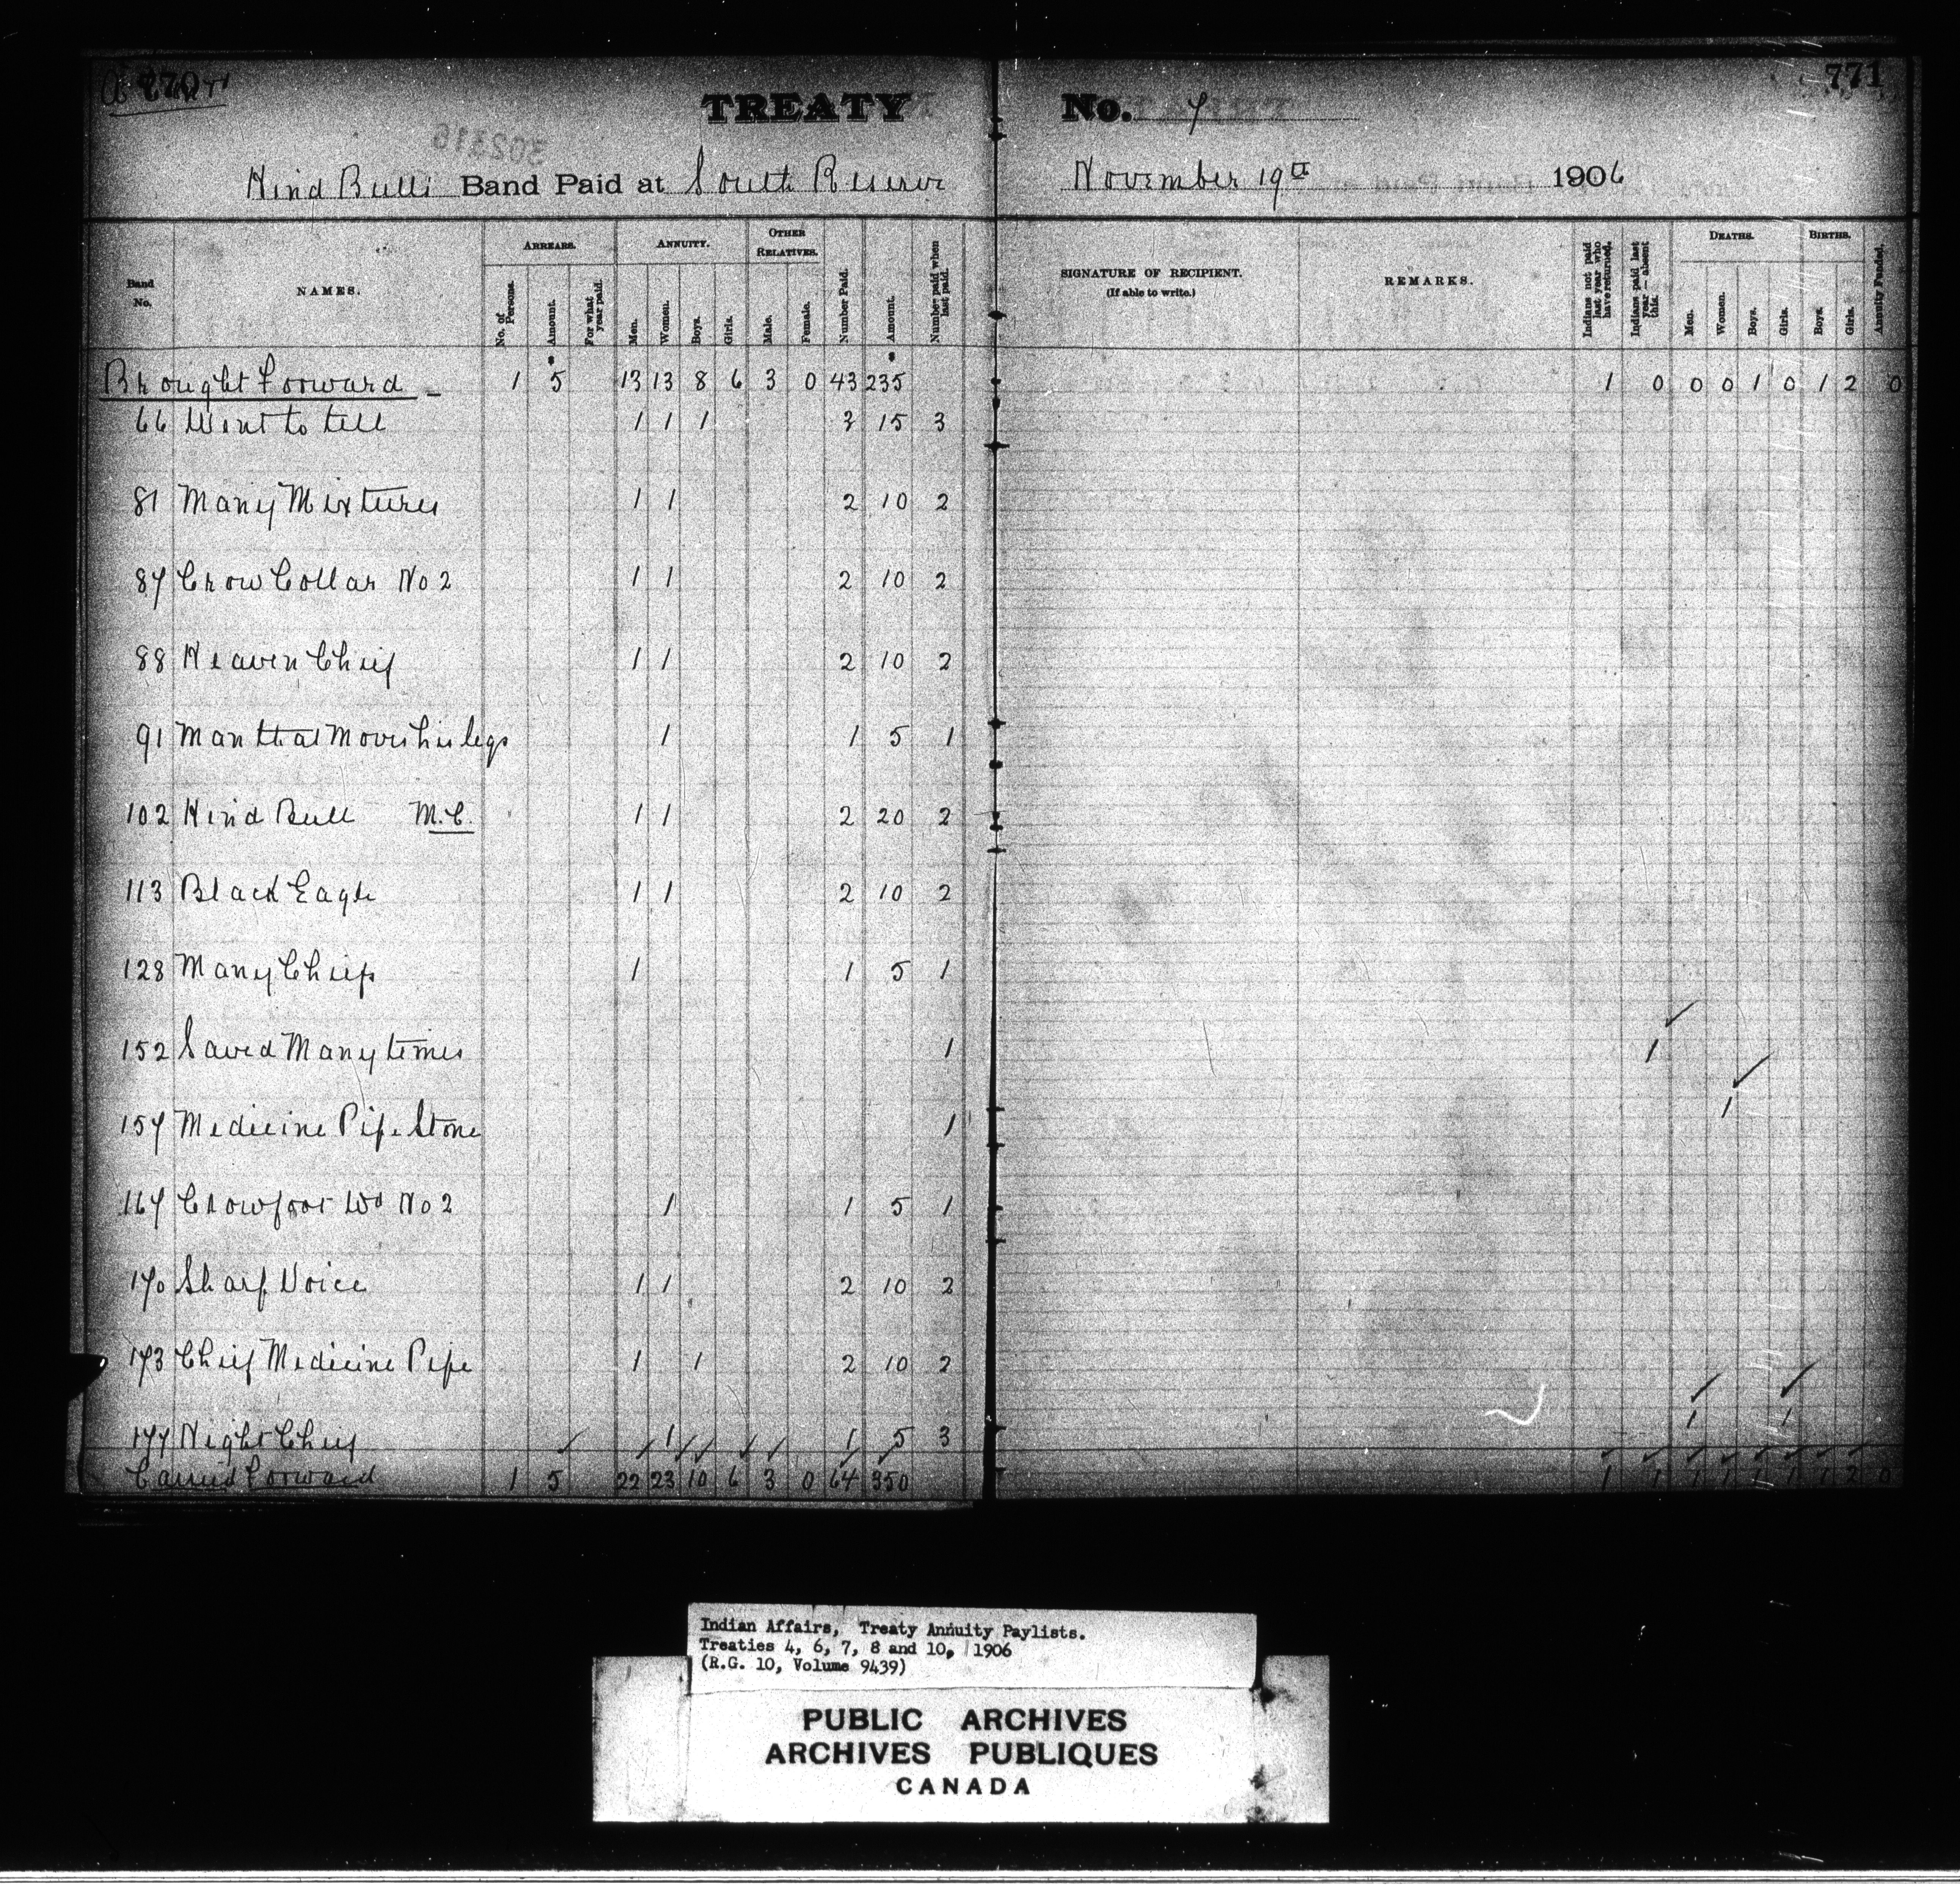 770 771
TREATY No. 7
302316
Hind Bull's Band Paid at South Reserve November 19th 1906
Band No. NAMES. ARREARS. No. of Persons. Amount. For what year paid. ANNUITY. Men. Women. Boys. Girls. OTHER RELATIVES. Male. Female. Number Paid. Amount. Number paid when last paid. SIGNATURE OF RECIPIENT. (If able to write.) REMARKS. Indians not paid last year who have returned. Indians paid last year — absent this. DEATHS. Men. Women. Boys. Girls. BIRTHS. Boys. Girls. Annuity Funded.
Brought Forward 1 5 13 13 8 6 3 0 43 235 1 0 0 0 1 0 1 2 0
66 Went to tell 1 1 1 3 15 3
81 Many Mixtures 1 1 2 10 2
87 Crow Collar No 2 1 1 2 10 2
88 Heaven Chief 1 1 2 10 2
91 Man that Moves his legs 1 1 5 1
102 Hind Bull M.C. 1 1 2 20 2
113 Black Eagle 1 1 2 10 2
128 Many Chiefs 1 1 5 1
152 Saved Many times 1 1
157 Medicine Pipe Stone 1 1
167 Crowfoot Wo No 2 1 1 5 1
170 Sharp Voice 1 1 2 10 2
173 Chief Medicine Pipe 1 1 2 10 2
177 Night Chief 1 1 5 3 1 1
Carried Forward 1 5 22 23 10 6 3 0 64 350 1 1 1 1 1 1 1 2 0
Indian Affairs, Treaty Annuity Paylists.
Treaties 4, 6, 7, 8 and 10, 1906
(R.G. 10, Volume 9439)
PUBLIC ARCHIVES
ARCHIVES PUBLIQUES
CANADA